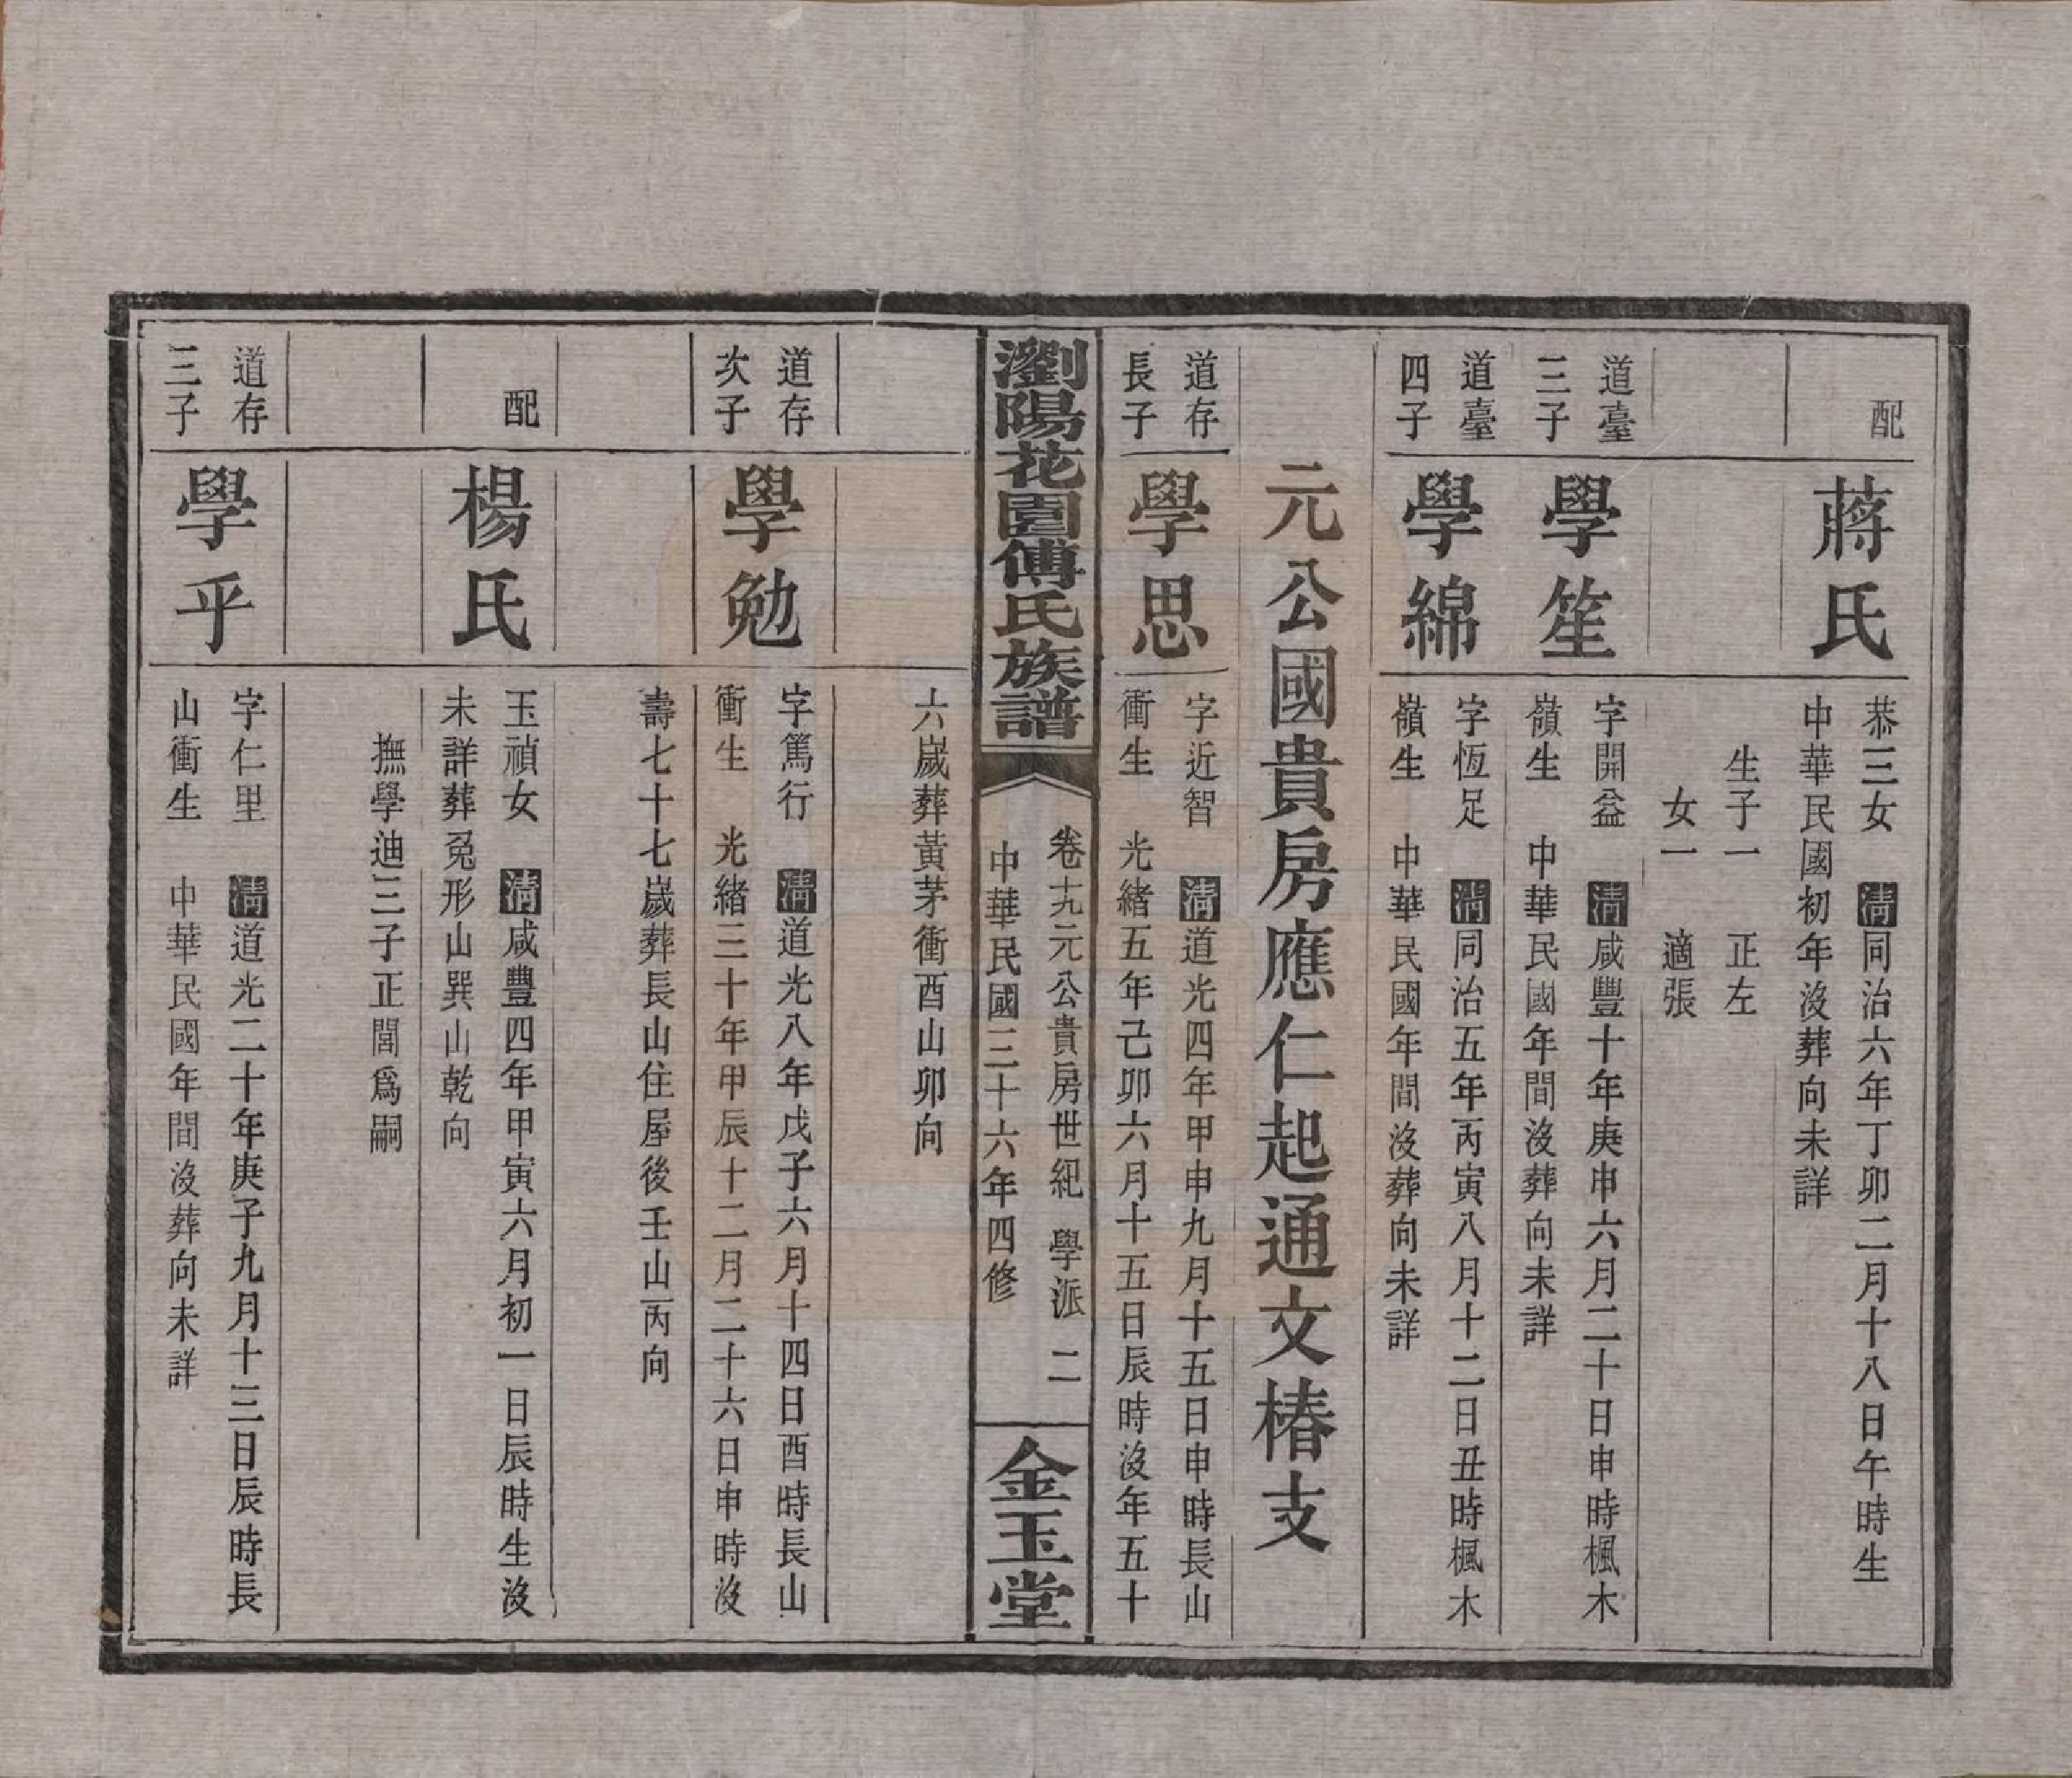 配
蔣氏
恭三女　清同治六年丁卯二月十八日午時生
中華民國初年沒葬向未詳
生子一　正左
女一　適張
道臺
三子
學笙
字開益　清咸豐十年庚申六月二十日申時楓木
嶺生　中華民國年間沒葬向未詳
道臺
四子
學綿
字恆足　清同治五年丙寅八月十二日丑時楓木
嶺生　中華民國年間沒葬向未詳
元公國貴房應仁起通文椿支
道存
長子
學思
字近智　清道光四年甲申九月十五日申時長山
衝生　光緒五年己卯六月十五日辰時沒年五十
瀏陽花園傅氏族譜
卷十九元公貴房世紀　學派　二
中華民國三十六年四修
金玉堂
六歲葬黃茅衝酉山卯向
道存
次子
學勉
字篤行　清道光八年戊子六月十四日酉時長山
衝生　光緒三十年甲辰十二月二十六日申時沒
壽七十七歲葬長山住屋後壬山丙向
配
楊氏
玉禎女　清咸豐四年甲寅六月初一日辰時生沒
未詳葬兔形山巽山乾向
撫學迪三子正閭爲嗣
道存
三子
學乎
字仁里　清道光二十年庚子九月十三日辰時長
山衝生　中華民國年間沒葬向未詳